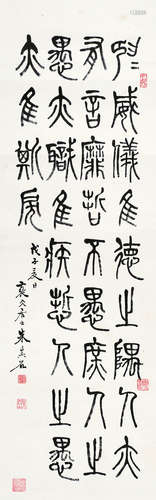 抑〻威儀隹德之隅人亦
有言靡哲不愚庶人之
愚亦職隹疾悊人之愚
亦隹斯戾
戊子夏日
居士朱其石